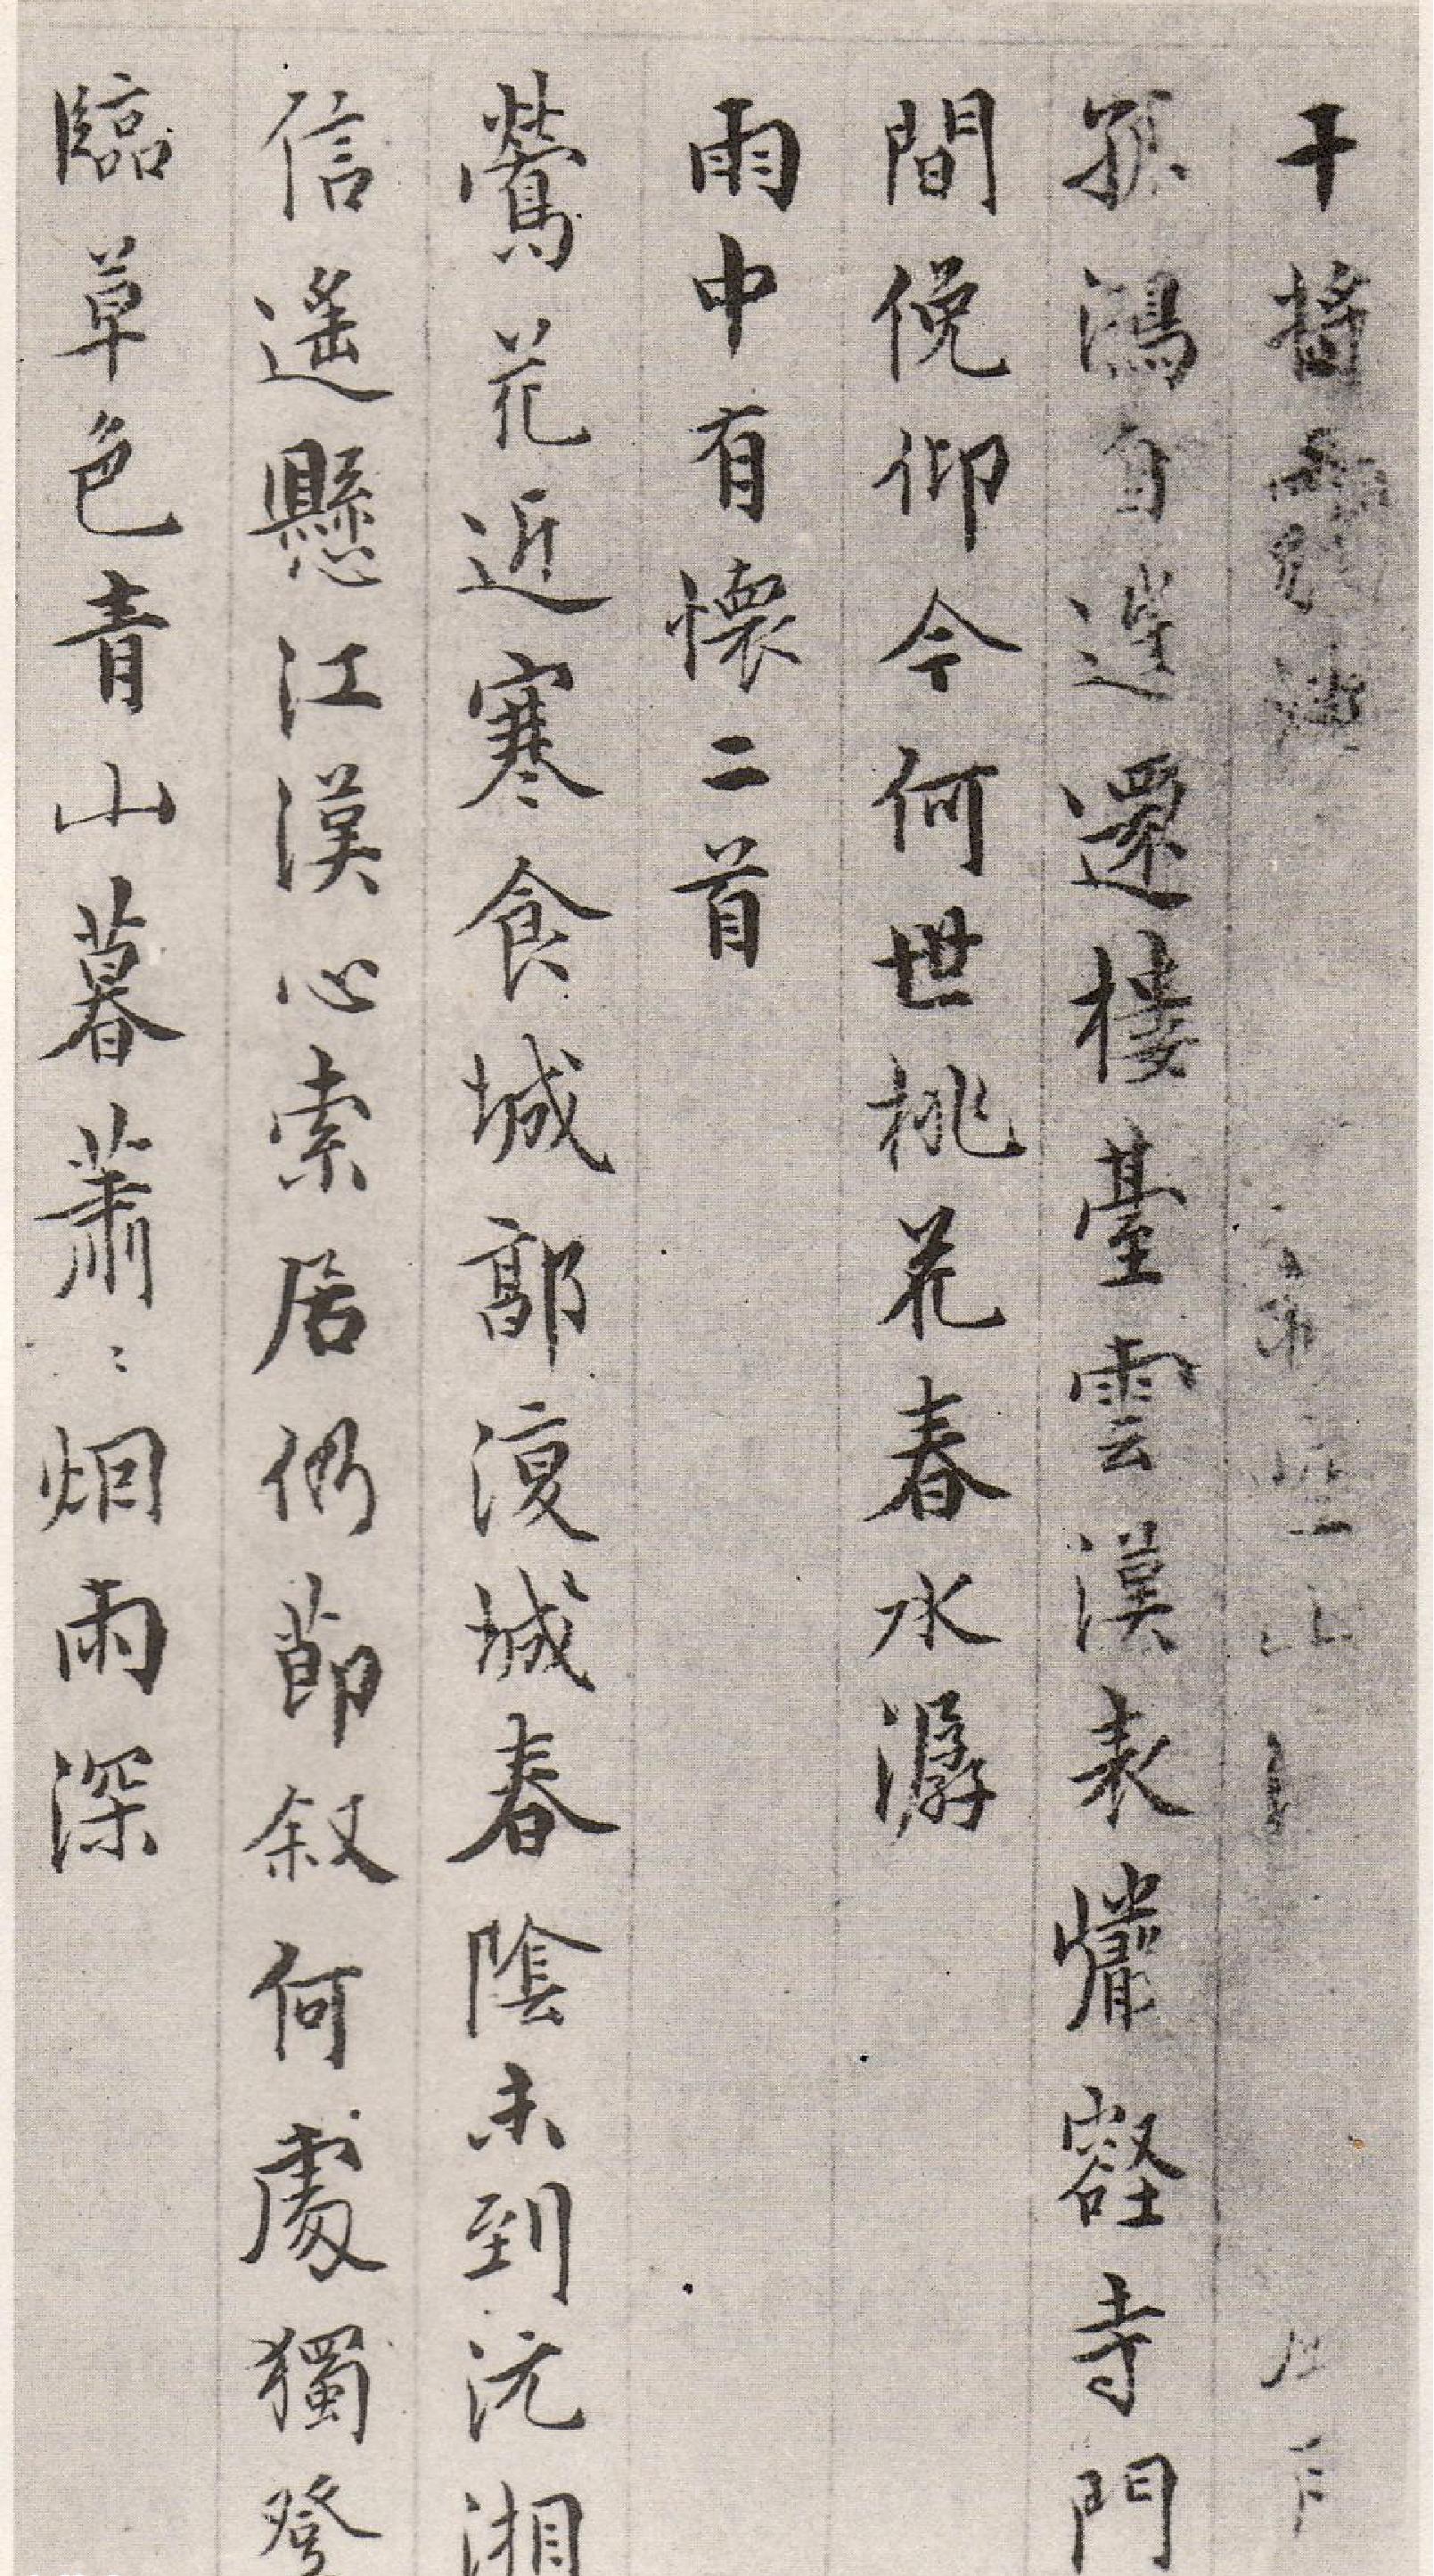 干將
孤鴻自還還樓臺雲漢表懽壑寺門
間俛仰今何世桃花春水潺
雨中有懷二首
鶯花近寒食城郭復城春陰未到沅湘
信遙懸江漢心索居仍節叙何處獨登
臨草色青山暮蕭〻烟雨深